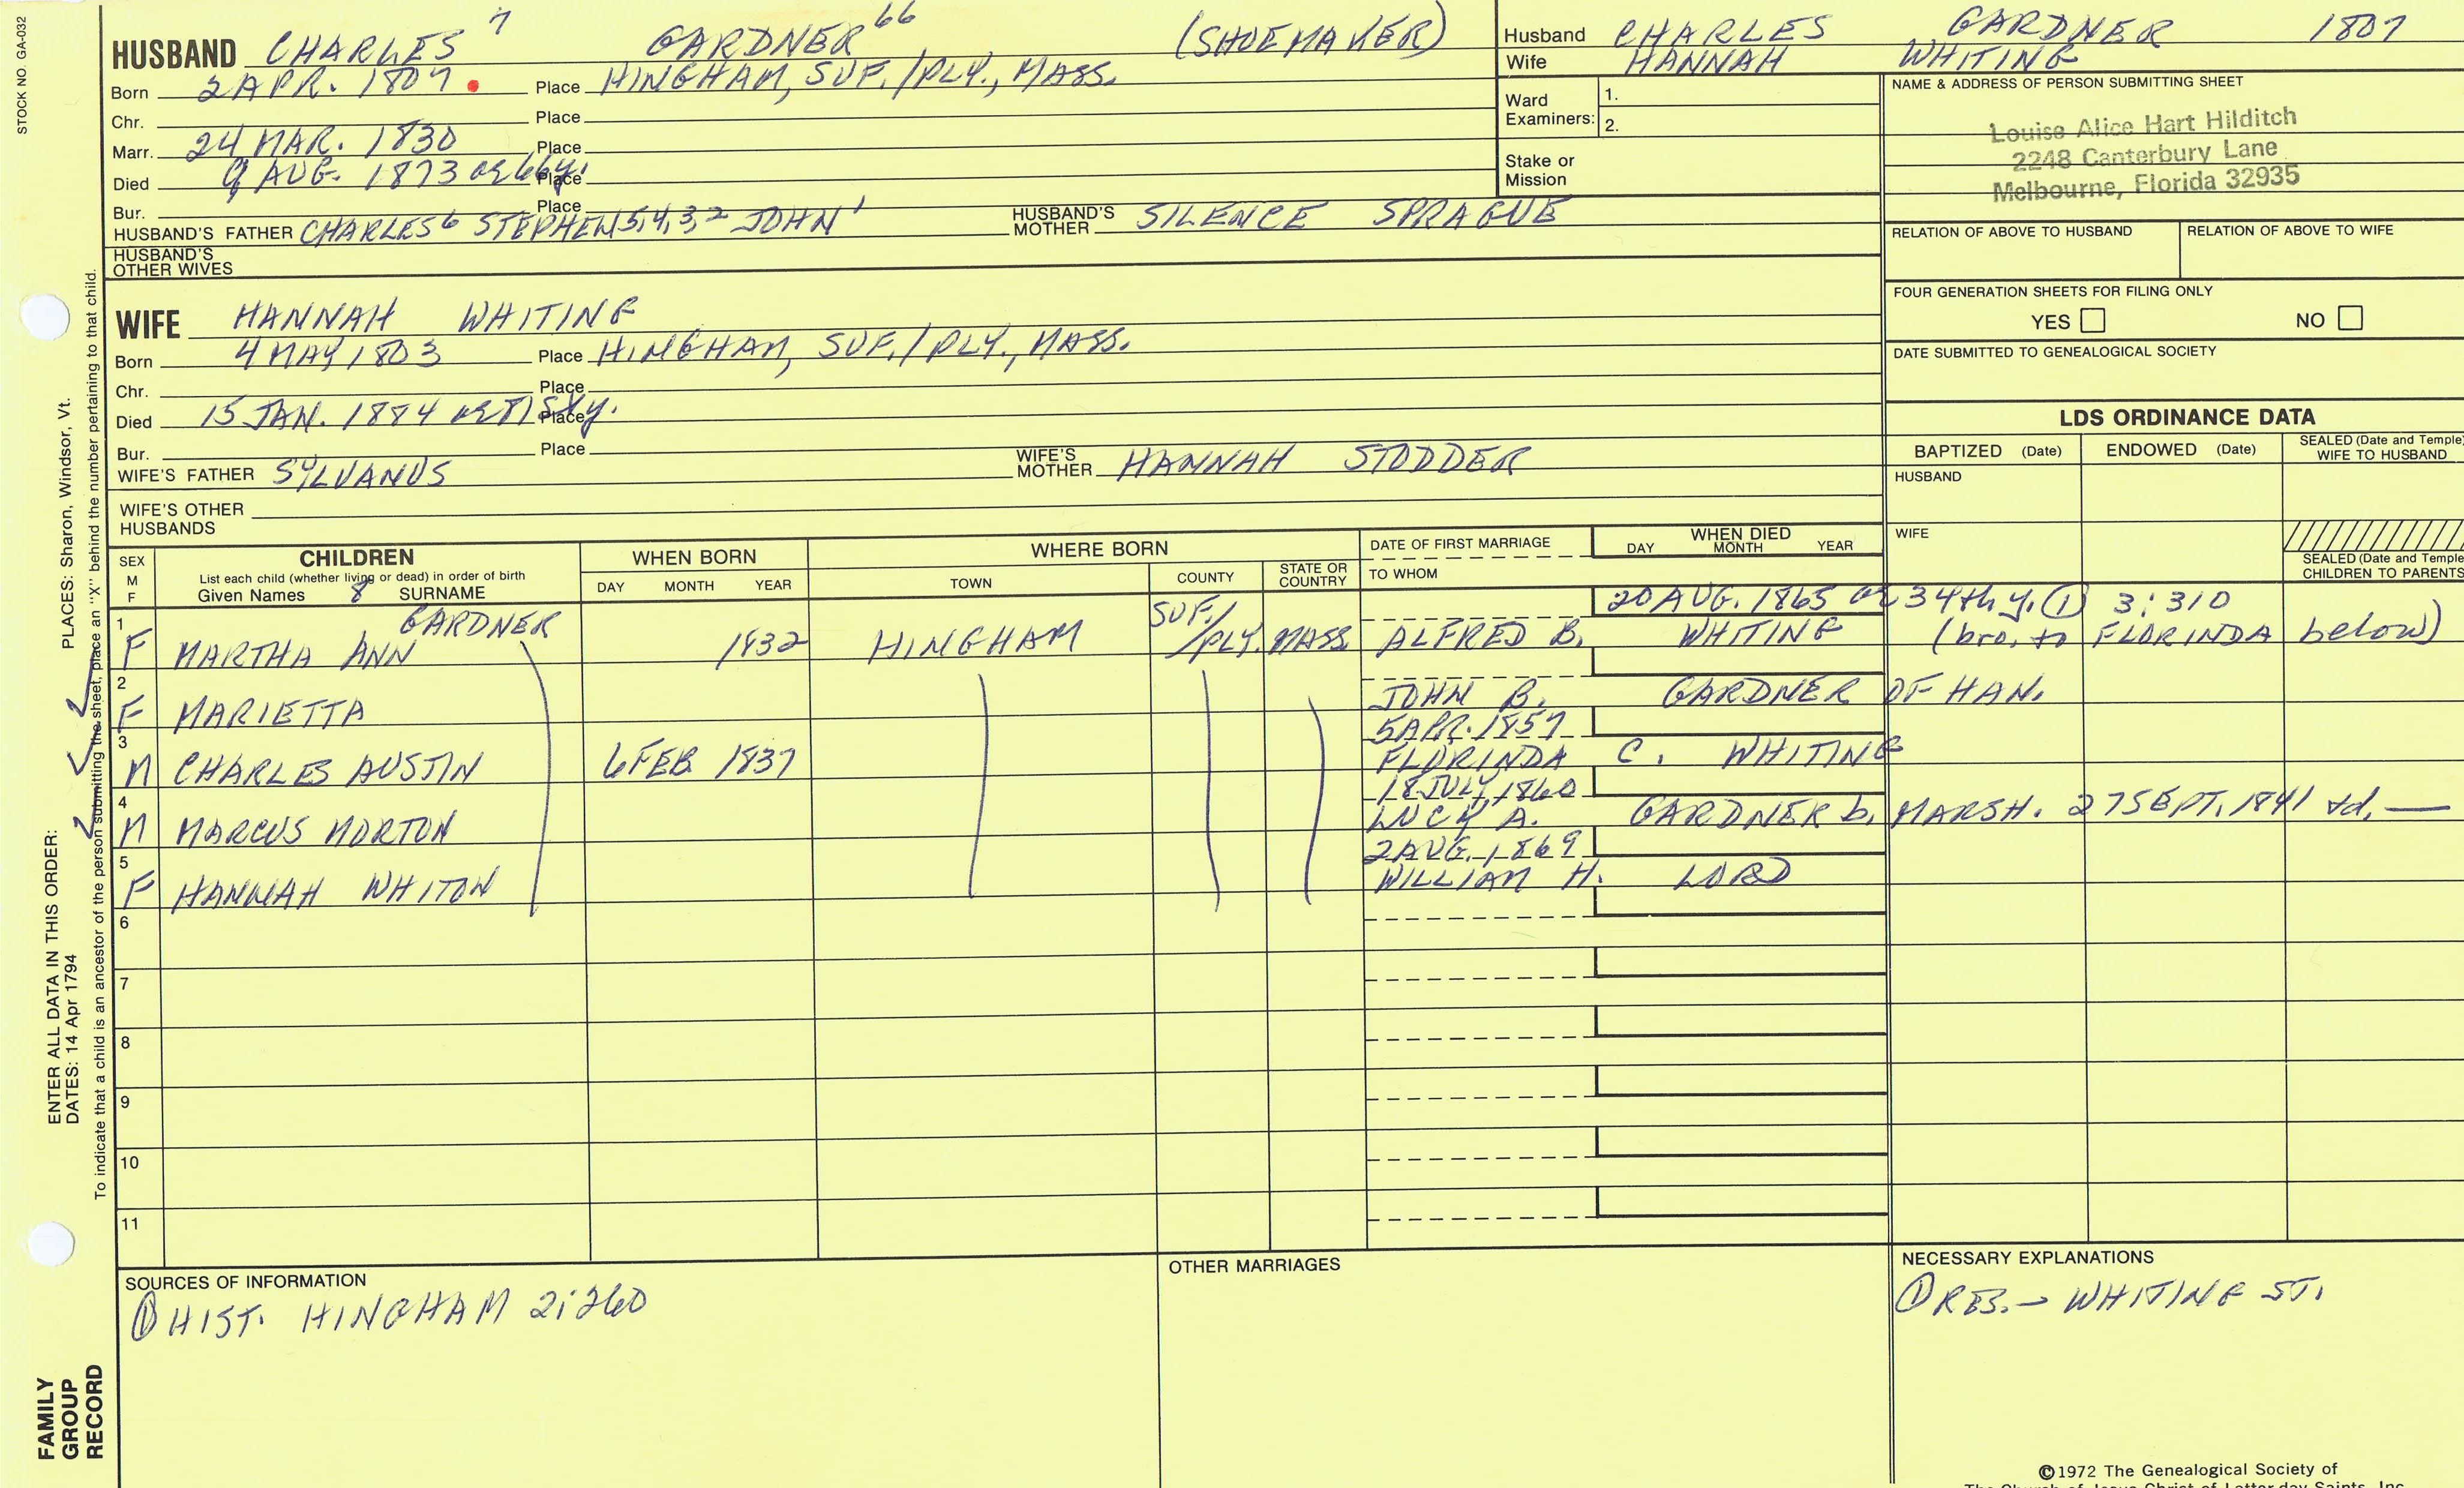 STOCK NO. GA-032
HUSBAND CHARLES 7 GARDNER 66 (SHOEMAKER)
Born 2 APR. 1807 Place HINGHAM, SUF./PLY., MASS.
Chr. Place
Marr. 24 MAR. 1830 Place
Died 9 AUG. 1873 ae 66y. Place
Bur. Place
HUSBAND'S FATHER CHARLES6 STEPHEN5,4,3,2 JOHN1 HUSBAND'S MOTHER SILENCE SPRAGUE
HUSBAND'S OTHER WIVES
Husband CHARLES GARDNER 1807
Wife HANNAH WHITING
Ward Examiners: 1.
2.
Stake or Mission
NAME & ADDRESS OF PERSON SUBMITTING SHEET
Louise Alice Hart Hilditch
2248 Canterbury Lane
Melbourne, Florida 32935
RELATION OF ABOVE TO HUSBAND RELATION OF ABOVE TO WIFE
FOUR GENERATION SHEETS FOR FILING ONLY
YES NO
DATE SUBMITTED TO GENEALOGICAL SOCIETY
WIFE HANNAH WHITING
Born 4 MAY 1803 Place HINGHAM, SUF./PLY., MASS.
Chr. Place
Died 15 JAN. 1884 ae 81st y. Place
Bur. Place
WIFE'S FATHER SYLVANUS WIFE'S MOTHER HANNAH STODDER
WIFE'S OTHER HUSBANDS
LDS ORDINANCE DATA
BAPTIZED (Date) ENDOWED (Date) SEALED (Date and Temple) WIFE TO HUSBAND
HUSBAND
WIFE
SEALED (Date and Temple) CHILDREN TO PARENTS
SEX M F
CHILDREN
List each child (whether living or dead) in order of birth
Given Names 8 SURNAME
WHEN BORN
DAY MONTH YEAR
WHERE BORN
TOWN COUNTY STATE OR COUNTRY
DATE OF FIRST MARRIAGE
TO WHOM
WHEN DIED
DAY MONTH YEAR
1 GARDNER SUF./ 20 AUG. 1865 ae 34th y. (1) 3:310
F MARTHA ANN 1832 HINGHAM PLY. MASS. ALFRED B. WHITING (bro. to FLORINDA below)
2
F MARIETTA JOHN B. GARDNER OF HAN.
3 5 APR. 1857
M CHARLES AUSTIN 6 FEB 1837 FLORINDA C. WHITING
4 18 JULY 1860
M MARCUS MORTON LUCY A. GARDNER b. MARSH. 27 SEPT. 1841 +d. —
5 2 AUG. 1869
F HANNAH WHITON WILLIAM H. LORD
6
7
8
9
10
11
SOURCES OF INFORMATION
① HIST. HINGHAM 2:260
OTHER MARRIAGES
NECESSARY EXPLANATIONS
① RES. → WHITING ST.
ENTER ALL DATA IN THIS ORDER:
DATES: 14 Apr 1794 PLACES: Sharon, Windsor, Vt.
To indicate that a child is an ancestor of the person submitting the sheet, place an "X" behind the number pertaining to that child.
FAMILY GROUP RECORD
©1972 The Genealogical Society of
The Church of Jesus Christ of Latter-day Saints, Inc.